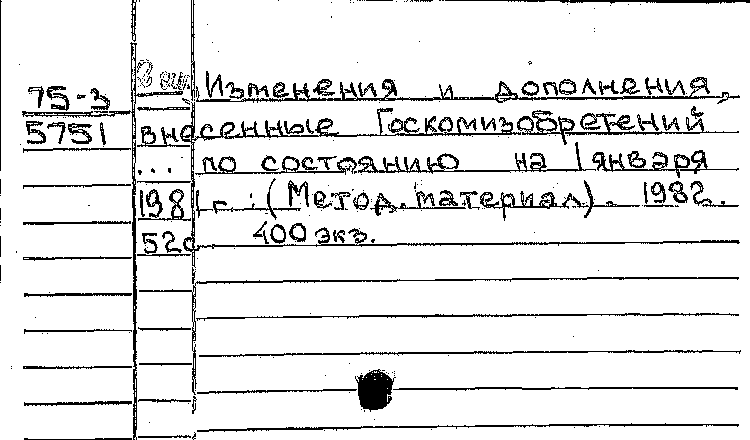 75-3 Изменения и дополнения,
5751 внесенные Госкомизобретений
... по состоянию на 1 января
1981 г.: (Метод. материал). 1982.
52с 400 экз.